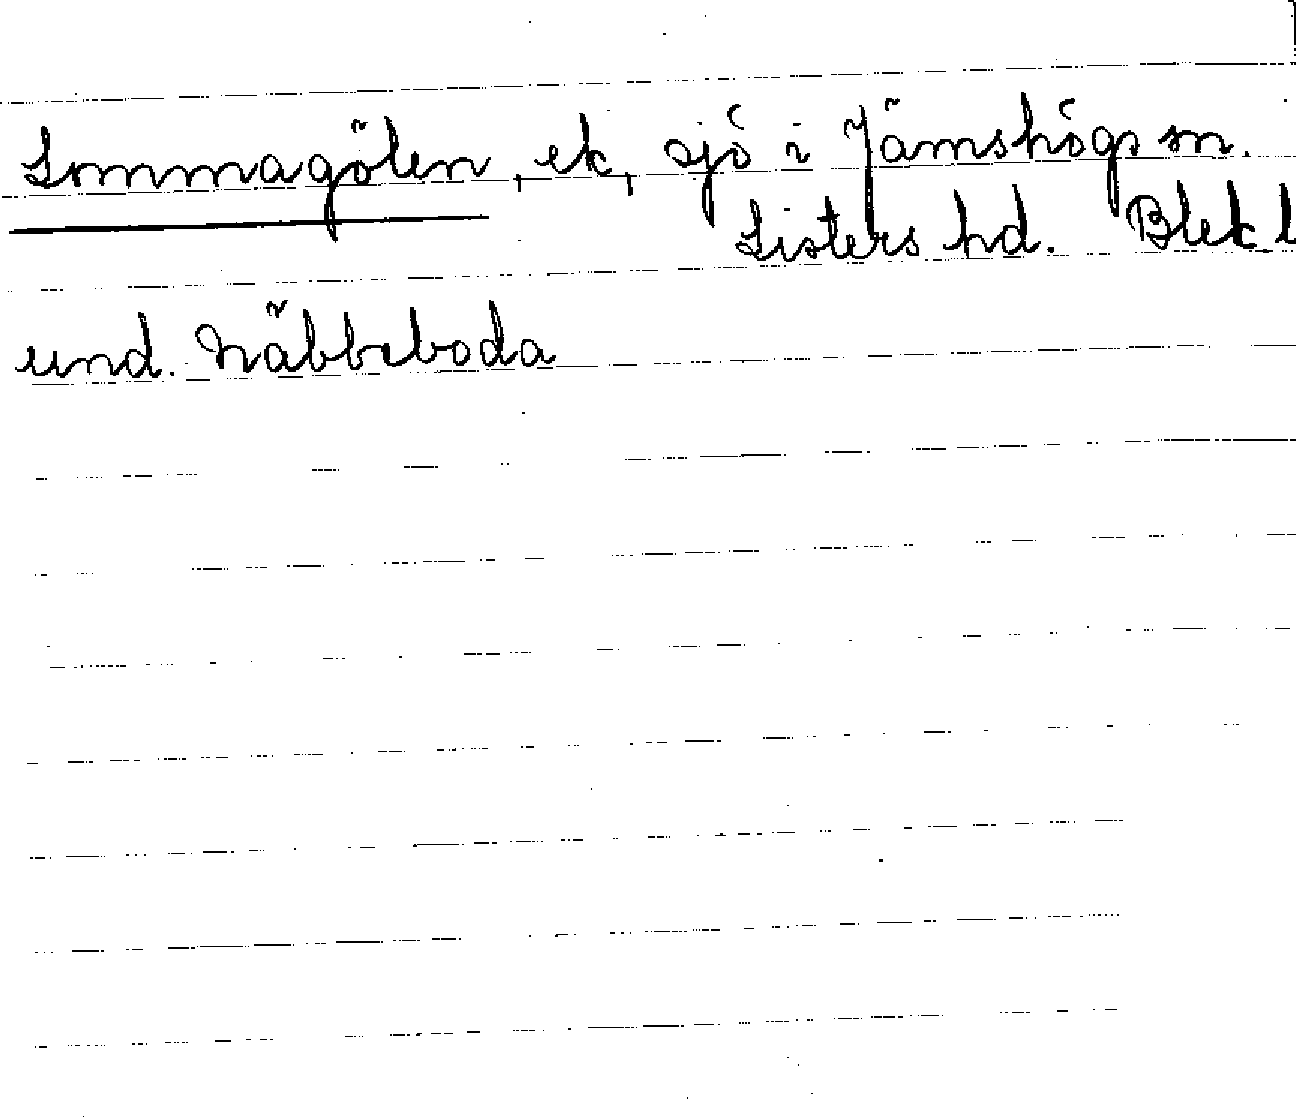 Lommagölen, ek, sjö i Jämshögs sn.
Listers hd. Blek l
und. Näbbeboda